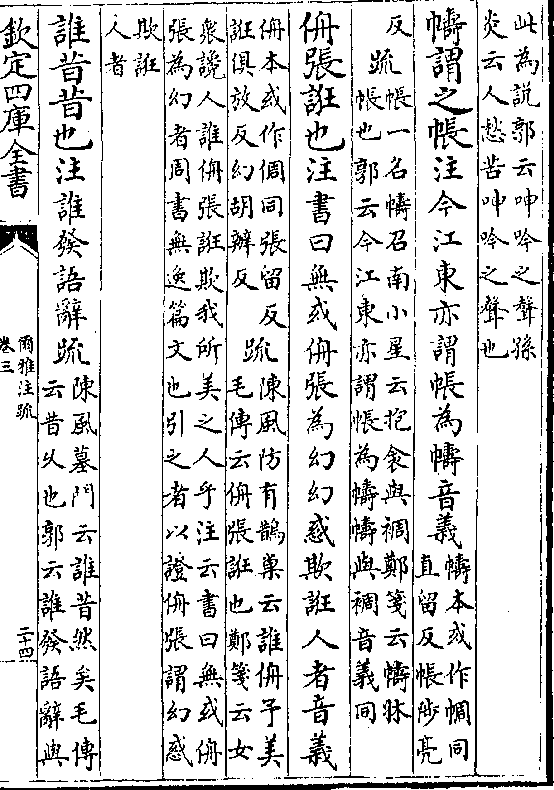 此為說郭云呻吟之聲孫
炎云人愁苦呻吟之聲也
幬謂之帳注今江東亦謂帳為幬音義
幬本或作㡡同
直留反帳陟亮
反
疏
帳一名幬召南小星云抱衾與裯鄭箋云幬牀
帳也郭云今江東亦謂帳為幬幬與裯音義同
侜張誑也注書曰無或侜張為幻幻惑欺誑人者音義
侜本或作倜同張留反
誑俱放反幻胡辦反
疏
陳風防有鵲巢云誰侜予美
毛傳云侜張誑也鄭箋云女
衆讒人誰侜張誑欺我所美之人乎注云書曰無或侜
張為幻者周書無逸篇文也引之者以證侜張謂幻惑
欺誑
人者
誰昔昔也注誰發語辭疏
陳風墓門云誰昔然矣毛傳
云昔久也郭云誰發語辭與
欽定四庫全書
爾雅注疏
卷三
二十四